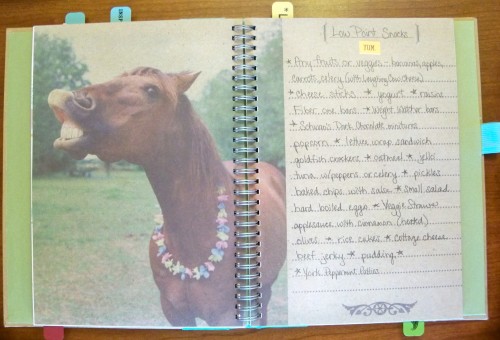 Low Point Snacks
YUM
* Any fruits or veggies - bananas, apples,
carrots, celery (with Laughing Cow cheese)
* cheese sticks * yogurt * raisins
Fiber one bars * Weight Watcher bars
* Schwan's Dark Chocolate minitures
popcorn * lettuce wrap sandwich
goldfish crackers * oatmeal * jello
tuna w/peppers or celery * pickles
baked chips with salsa * small salad
hard boiled eggs * Veggie Straws
applesauce with cinnamon (heated)
olives * rice cakes * cottage cheese
beef jerky * pudding *
* York Peppermint Patties